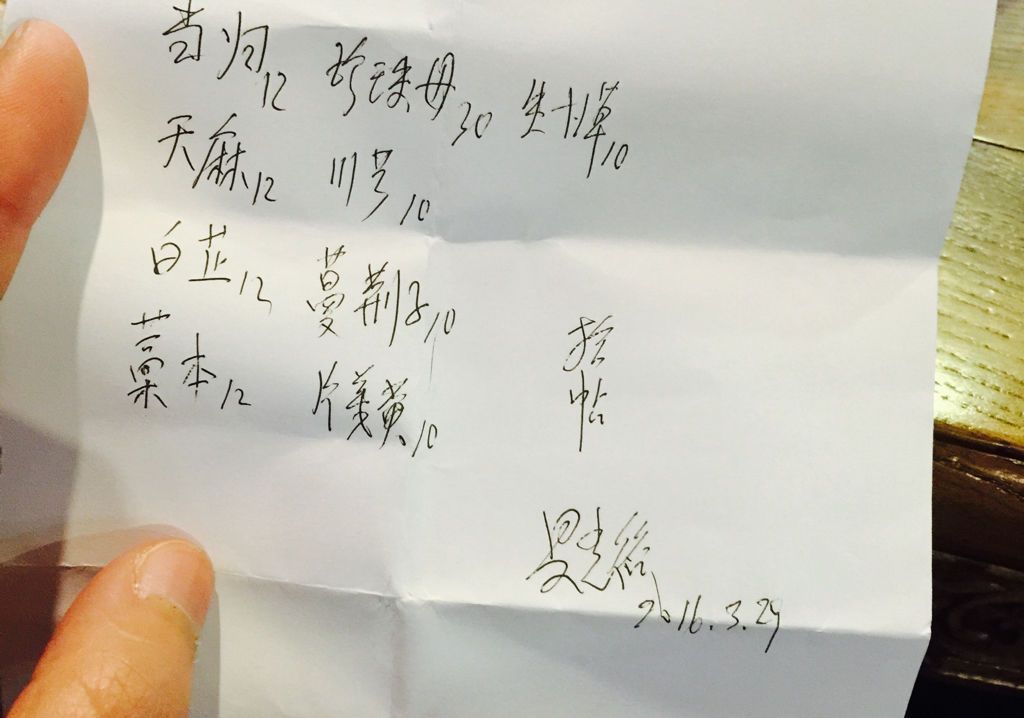 当归12 珍珠母30 生甘草10
天麻12 川芎10
白芷12 蔓荆子10
藁本12 片姜黄10
拾
帖
2016.3.29